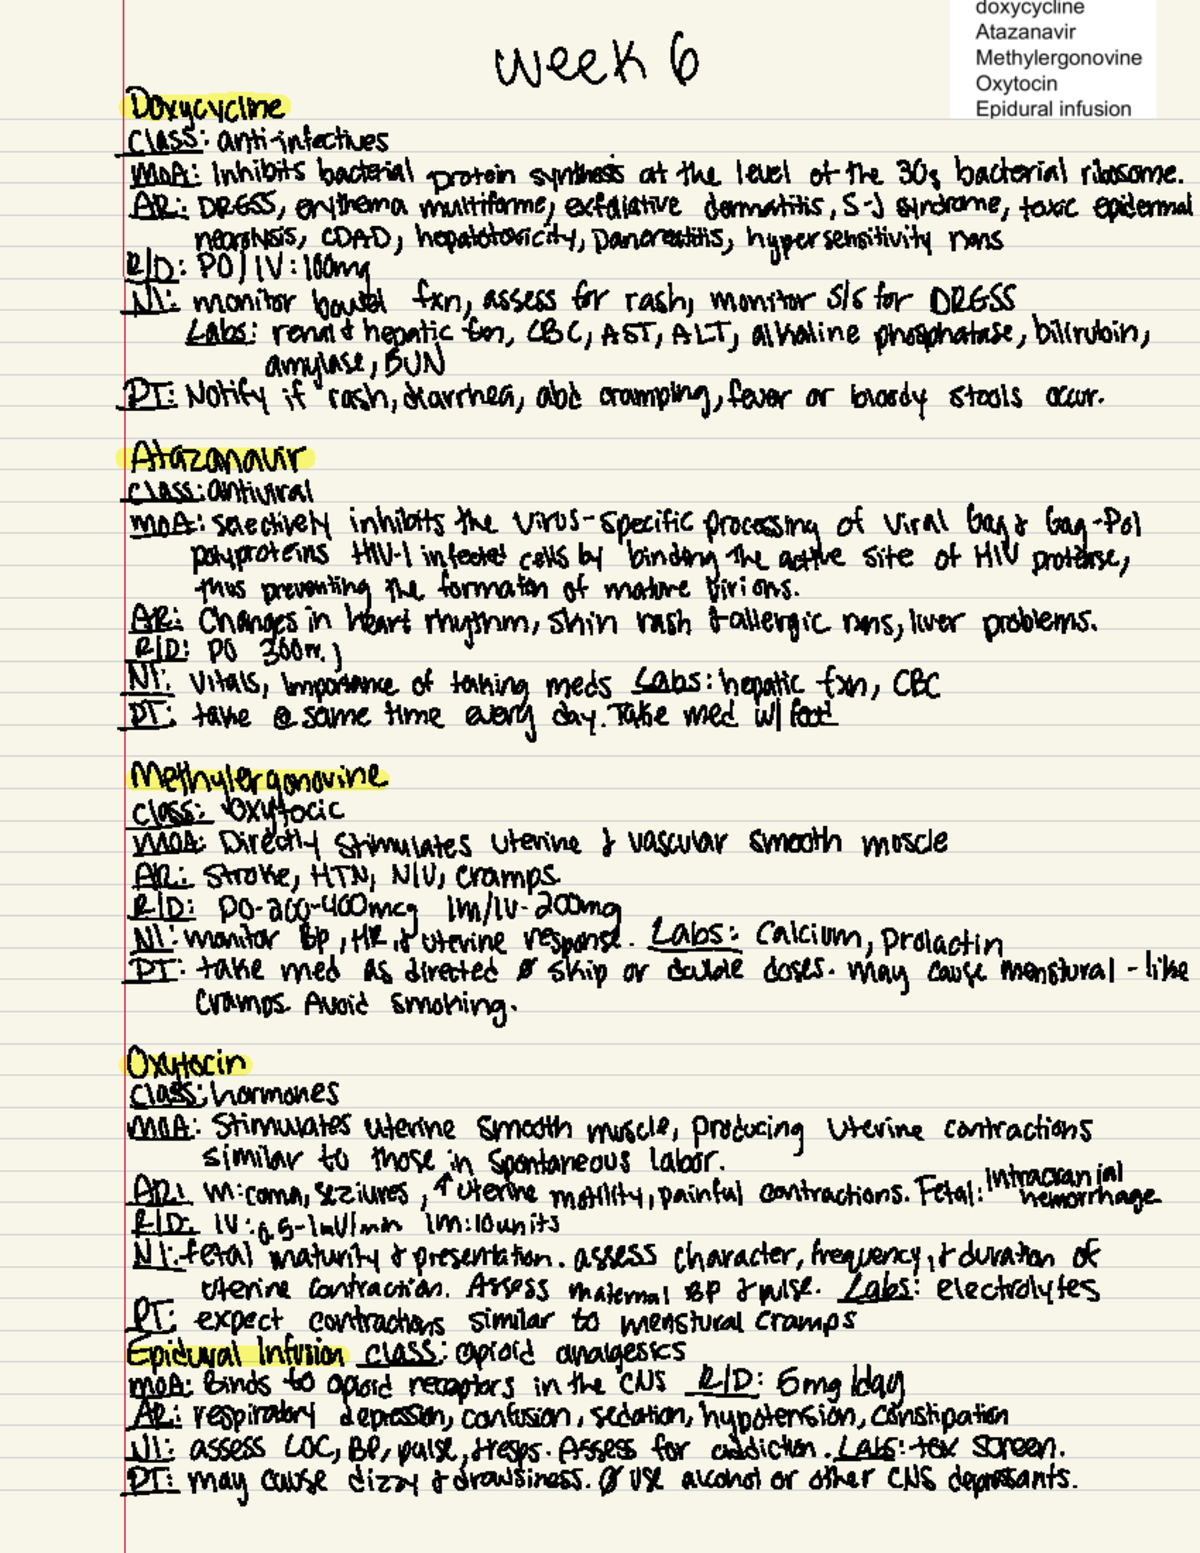 doxycycline
Atazanavir
Methylergonovine
Oxytocin
Epidural infusion
Week 6
Doxycycline
Class: anti-infectives
MoA: Inhibits bacterial protein synthesis at the level of the 30s bacterial ribosome.
AR: DRESS, erythema multiforme, exfoliative dermatitis, S-J syndrome, toxic epidermal
necrolysis, CDAD, hepatotoxicity, pancreatitis, hypersensitivity rxns
R/D: PO/IV: 100mg
NI: monitor bowel fxn, assess for rash, monitor s/s for DRESS
Labs: renal & hepatic fxn, CBC, AST, ALT, alkaline phosphatase, bilirubin,
amylase, BUN
PT: Notify if rash, diarrhea, abd cramping, fever or bloody stools occur.
Atazanavir
Class: antiviral
MoA: selectively inhibits the virus-specific processing of viral Gag & Gag-Pol
polyproteins HIV-1 infected cells by binding the active site of HIV protease,
thus preventing the formation of mature virions.
AR: Changes in heart rhythm, skin rash & allergic rxns, liver problems.
R/D: PO 300m
NI: Vitals, importance of taking meds Labs: hepatic fxn, CBC
PT: take @ same time every day. Take med w/ food
Methylergonovine
Class: Oxytocic
MOA: Directly stimulates uterine & vascular smooth muscle
AR: Stroke, HTN, N/V, cramps.
R/D: PO-200-400mcg IM/IV-200mg
NI: monitor BP, HR, & uterine response. Labs: Calcium, Prolactin
PT: take med as directed Ø skip or double doses. may cause menstural-like
cramps. Avoid smoking.
Oxytocin
Class: hormones
MOA: Stimulates uterine smooth muscle, producing uterine contractions
similar to those in spontaneous labor.
AR: M: coma, seziures, ↑ uterine motility, painful contractions. Fetal: Intracranial
hemorrhage
R/D: IV: 0.5-1mU/min IM: 10 units
NI: fetal maturity & presentation. assess character, frequency, & duration of
uterine contraction. Assess maternal BP & pulse. Labs: electrolytes
PT: expect contractions similar to menstural cramps
Epidural Infusion class: opioid analgesics
MOA: Binds to opioid receptors in the CNS R/D: 5mg/day
AR: respiratory depression, confusion, sedation, hypotension, constipation
NI: assess LOC, BP, pulse, & resps. Assess for addiction. Labs: tox screen.
PT: may cause dizzy & drowsiness. Ø use alcohol or other CNS depressants.